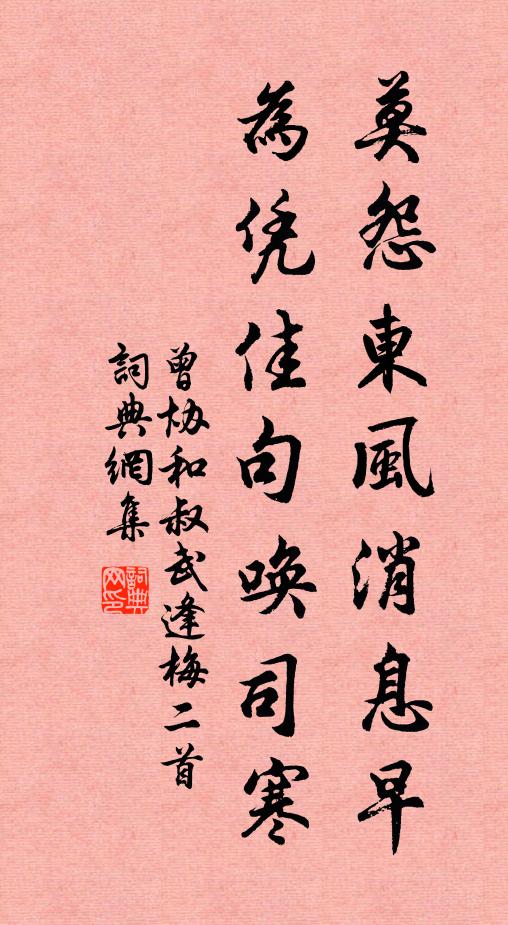 莫怨東風消息早
為凭佳句唤司寒
曾协和叔武逢梅二首
詞典網集
詞典
网印